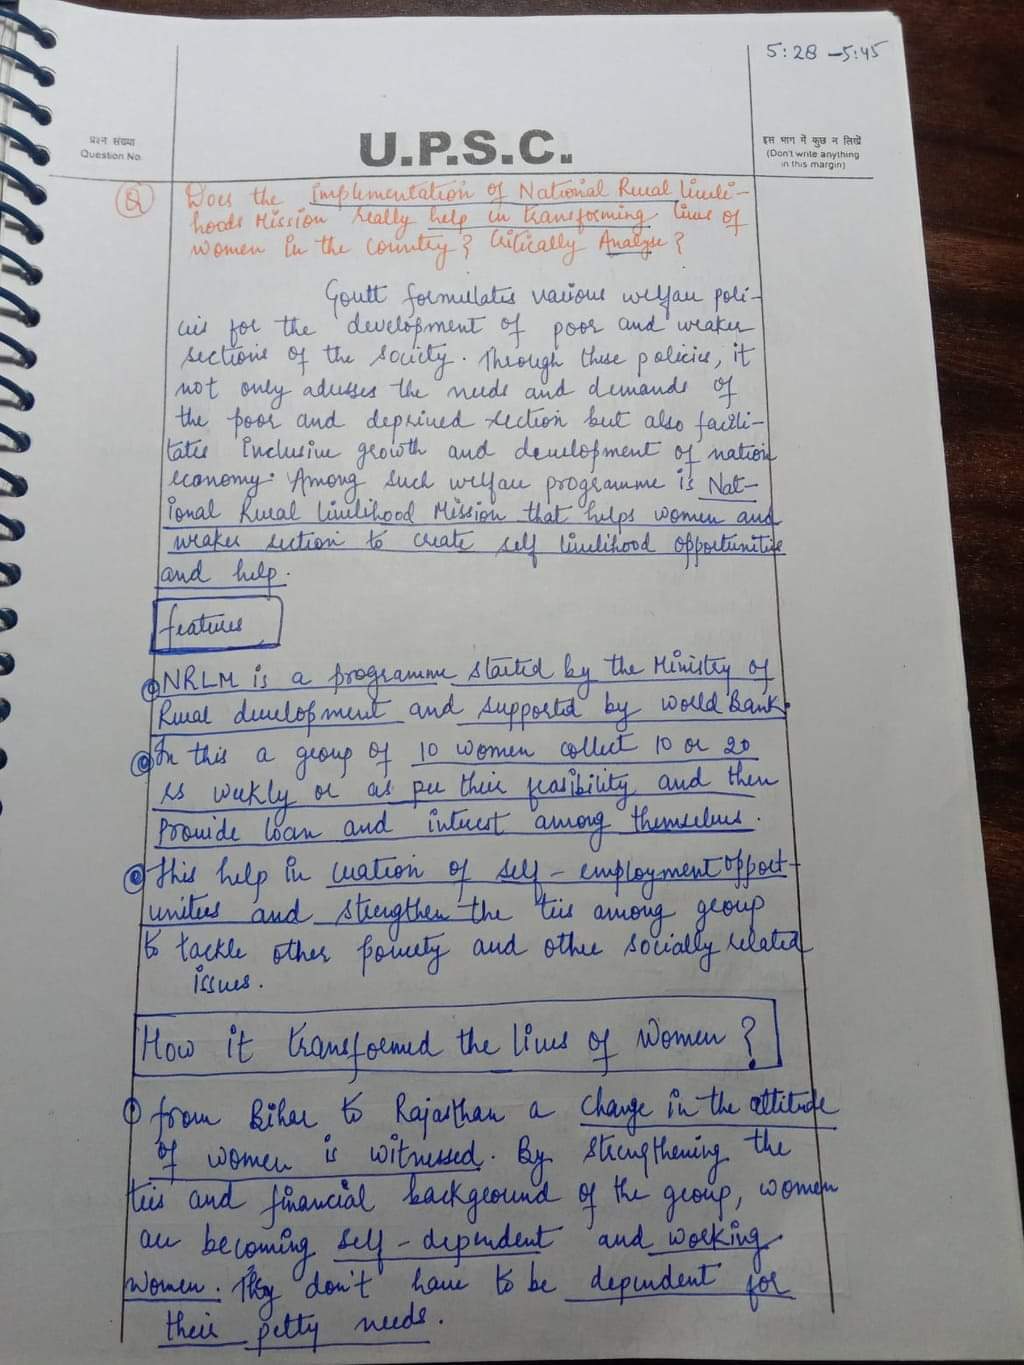 5:28 - 5:45
प्रश्न संख्या
Question No.
U.P.S.C.
इस भाग में कुछ न लिखें
(Don't write anything
in this margin)
Q Does the implementation of National Rural Liveli-
hoods Mission really help in transforming lives of
women in the country? Critically Analyse?
Govtt formulates various welfare poli-
cies for the development of poor and weaker
sections of the society. Through these policies, it
not only adresses the needs and demands of
the poor and deprived section but also facili-
tates inclusive growth and development of nation
economy. Among such welfare programme is Nat-
ional Rural livelihood Mission that helps women and
weaker section to create self livelihood opportunities
and help.
features
NRLM is a programme started by the Ministry of
Rural development and supported by world Bank.
In this a group of 10 women collect 10 or 20
rs weekly or as per their feasibility and then
provide loan and interest among themselves.
This help in creation of self-employment opport-
unities and strengthen the ties among group
to tackle other poverty and other socially related
issues.
How it transformed the lives of women?
① from Bihar to Rajasthan a change in the attitude
of women is witnessed. By strengthening the
ties and financial background of the group, women
are becoming self-dependent and working
women. They don't have to be dependent for
their petty needs.